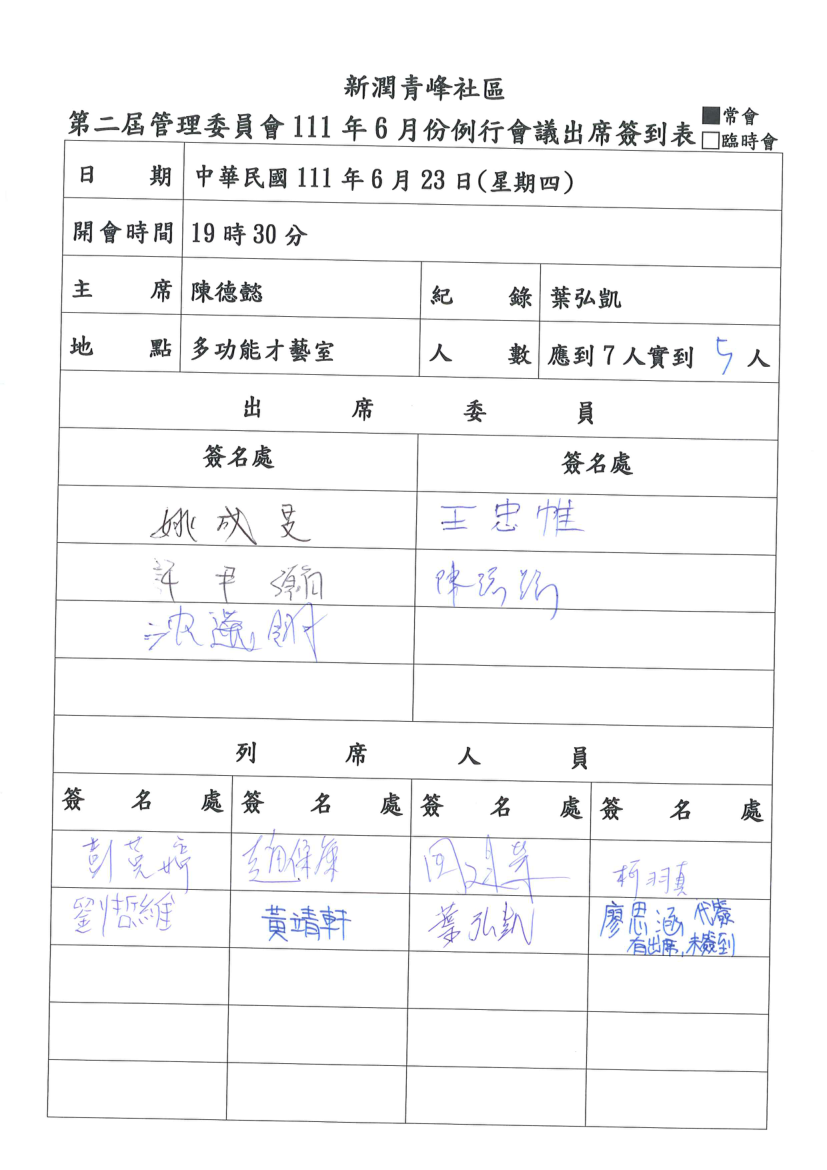 新潤青峰社區
第二屆管理委員會 111 年 6 月份例行會議出席簽到表 ■常會
□臨時會
日期 中華民國 111 年 6 月 23 日(星期四)
開會時間 19 時 30 分
主席 陳德懿 紀錄 葉弘凱
地點 多功能才藝室 人數 應到 7 人實到 5 人
出席委員
簽名處 簽名處
姚成 王忠惟
許尹瀚 陳
沈
列席人員
簽名處 簽名處 簽名處 簽名處
彭 趙保康 柯羽真
劉哲維 黃靖軒 葉弘凱 廖思涵 代簽
有出席,未簽到